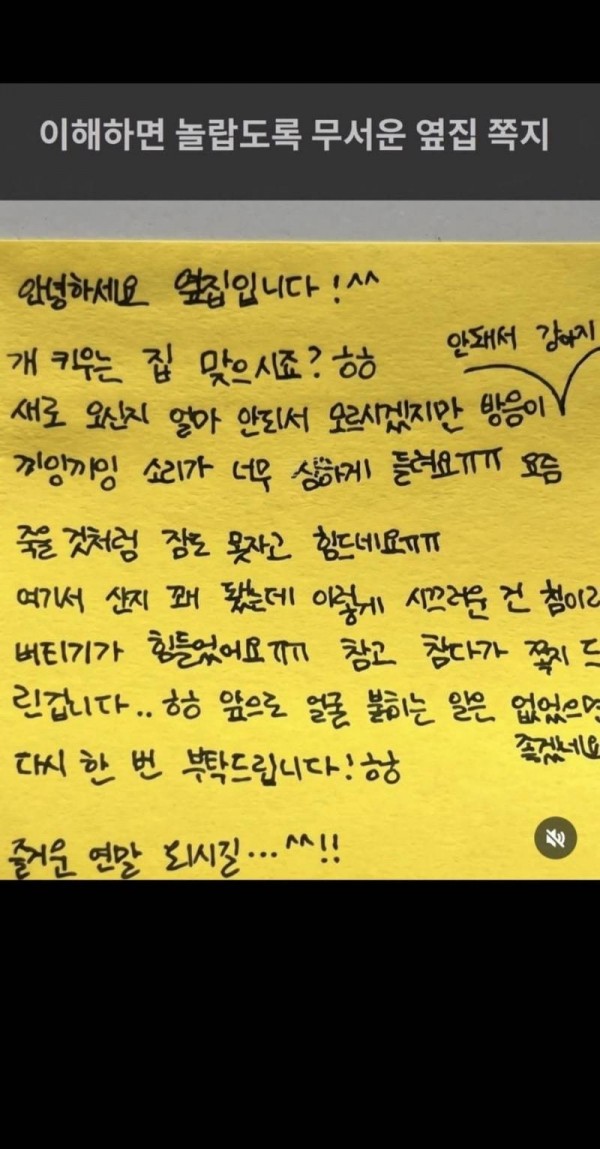 이해하면 놀랍도록 무서운 옆집 쪽지
안녕하세요 옆집입니다!^^
개 키우는 집 맞으시죠? ㅎㅎ
새로 오신지 얼마 안되서 모르시겠지만 방음이
안돼서 강아지
끼잉끼잉 소리가 너무 심하게 들려요ㅠㅠ 요즘
죽을 것처럼 잠도 못자고 힘드네요ㅠㅠ
여기서 산지 꽤 됐는데 이렇게 시끄러운 건 첨이라
버티기가 힘들었어요ㅠㅠ 참고 참다가 쪽지 드
린겁니다.. ㅎㅎ 앞으로 얼굴 붉히는 일은 없었으면
좋겠네요
다시 한 번 부탁드립니다!ㅎㅎ
즐거운 연말 되시길...^^!!